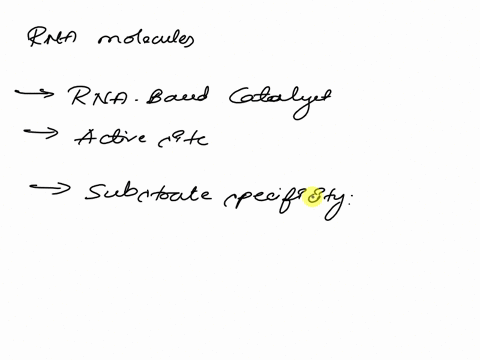 RNA molecules
→ RNA-Based Catalyst
→ Active site
→ Substrate specificity: